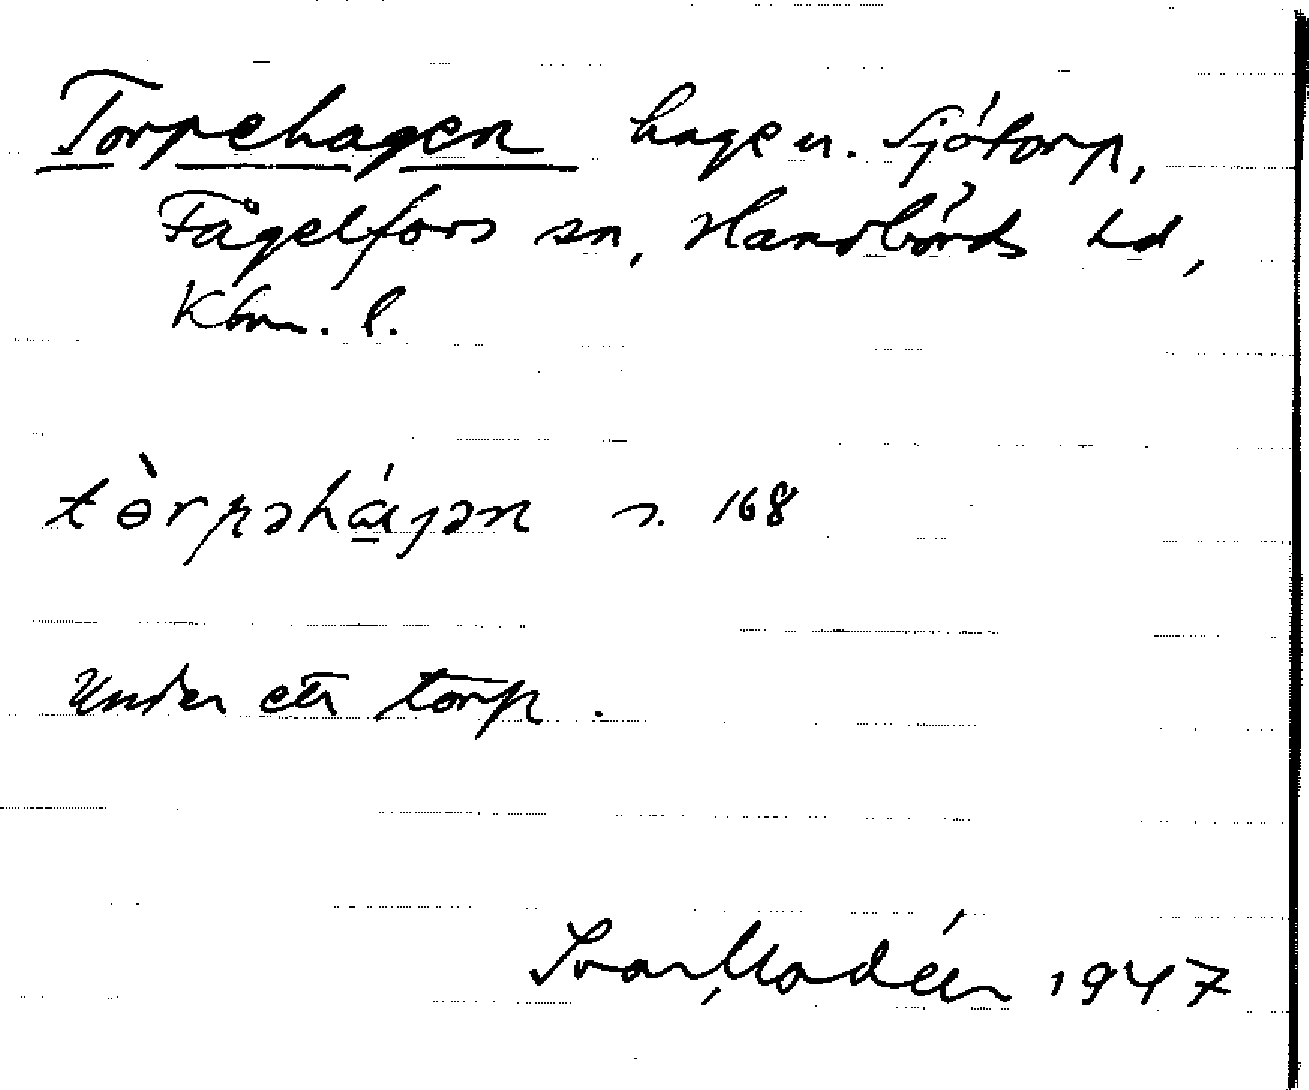 Torpehagen hage u. Sjötorp,
Fågelfors sn, Handbörds hd,
Kbm. l.
tɵ̀rpəhá̱gən s. 168
Under ett torp.
Ivar Modéer 1947